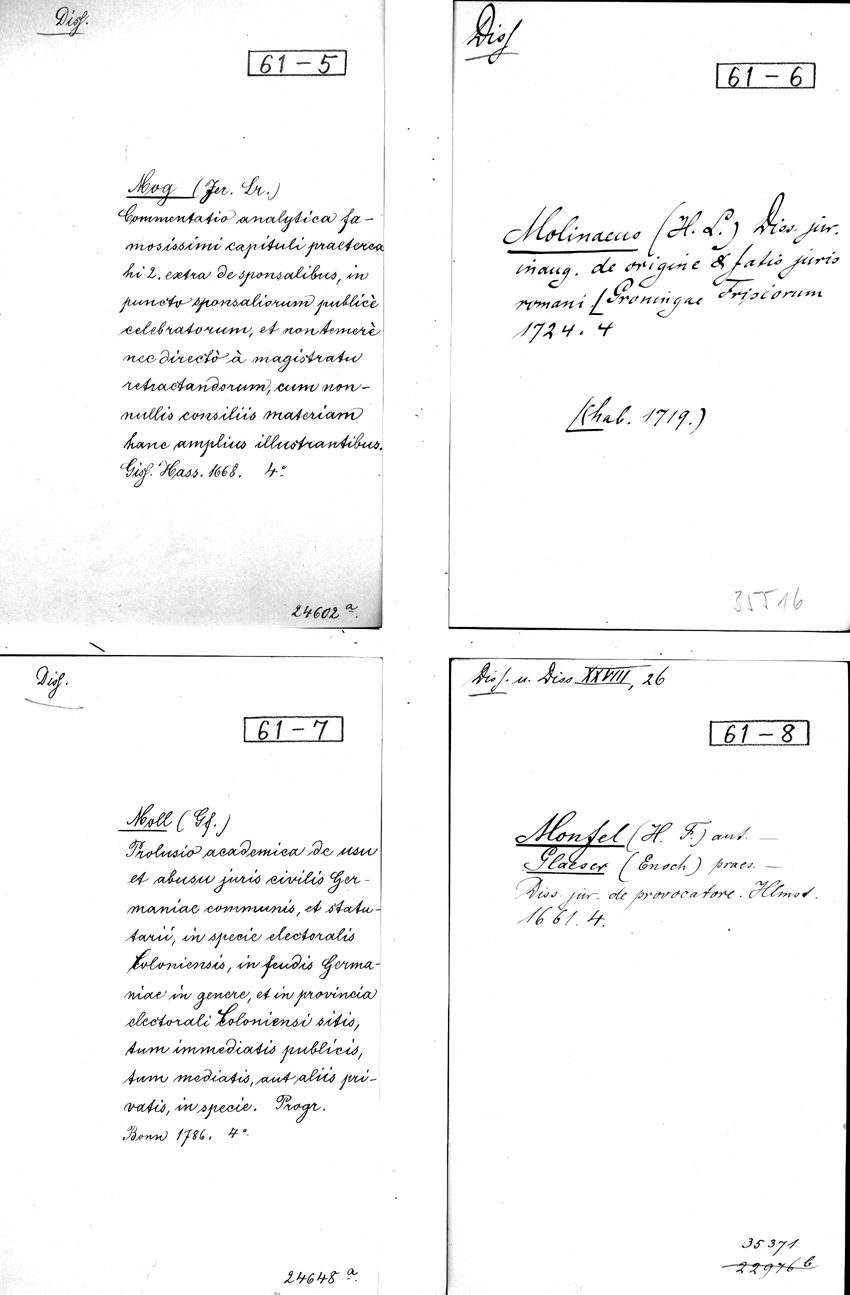 Diss.
61-5
Mog (Jer. Lr.)
Commentatio analytica fa-
mosissimi capituli praeterea
hi 2. extra de sponsalibus, in
puncto sponsaliorum publicè
celebratorum, et non temerè
nec directò à magistratu
retractandorum, cum non-
nullis consiliis materiam
hanc amplius illustrantibus.
Giss. Hass. 1668. 4°.
24602 a.
Diss
61-6
Molinaeus (H. L.) Diss. jur.
inaug. de origine & fatis juris
romani [Groningae Frisiorum
1724. 4
(hab. 1719.)
35516
Diss.
61-7
Moll (Gf.)
Prolusio academica de usu
et abusu juris civilis Ger-
maniae communis, et statu-
tarii, in specie electoralis
Coloniensis, in feudis Germa-
niae in genere, et in provincia
electorali Coloniensi sitis,
tum immediatis publicis,
tum mediatis, aut aliis pri-
vatis, in specie. Progr.
Bonn 1786. 4°.
24648 a.
Diss. u. Diss XXVIII, 26
61-8
(H. F.) aut. —
Glaeser (Enoch) praes. —
Diss. jur. de provocatore. Hlmst.
1661. 4.
35371
22976 b